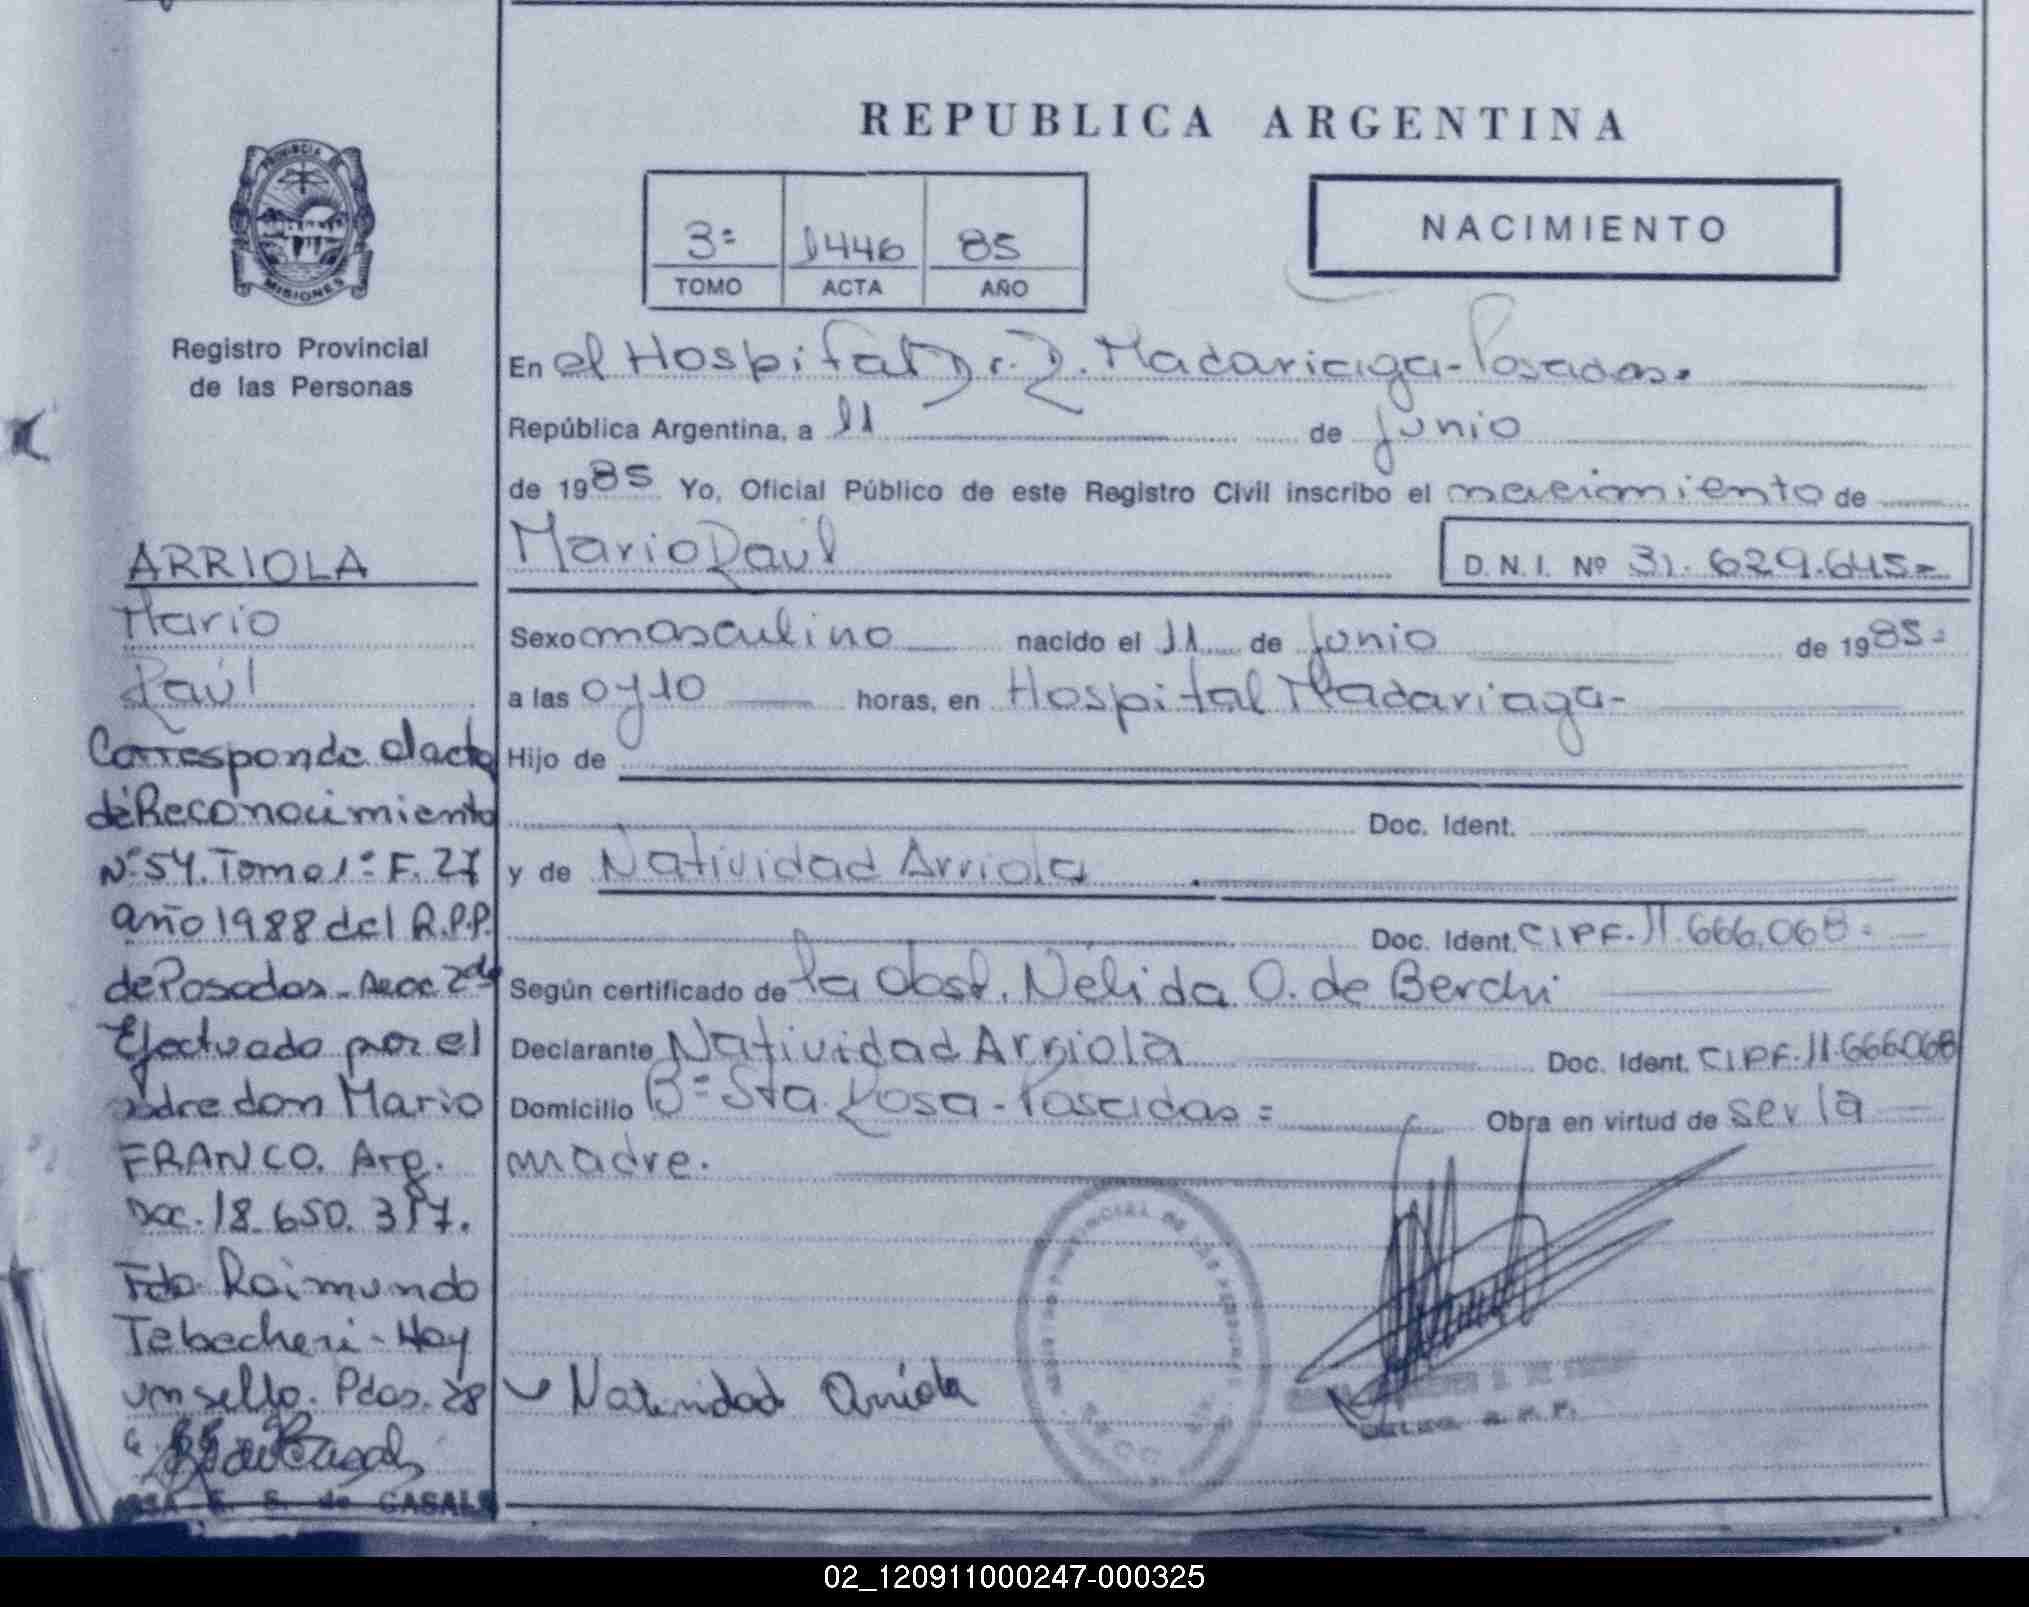 REPUBLICA ARGENTINA
PROVINCIA DE
MISIONES
Registro Provincial
de las Personas
3º 1446 85
TOMO ACTA AÑO
NACIMIENTO
En el Hospital Dr. R. Madariaga-Posadas.
República Argentina, a 11 de junio
de 1985 Yo, Oficial Público de este Registro Civil inscribo el nacimiento de
Mario Raúl
D.N.I. Nº 31.629.645=
Sexo masculino nacido el 11 de junio de 1985=
a las 0 y 10 horas, en Hospital Madariaga-
Hijo de
Doc. Ident.
y de Natividad Arriola
Doc. Ident. CIPF. 11.666.068=
Según certificado de la obst. Nélida O. de Berchi
Declarante Natividad Arriola Doc. Ident. CIPF. 11.666.068
Domicilio Bº Sta. Rosa-Posadas= Obra en virtud de ser la
madre.
Natividad Arriola
ARRIOLA
Mario
Raúl
Corresponde al acta
de Reconocimiento
Nº 54. Tomo 1º F. 27
año 1988 del R.P.P.
de Posadas - secc 2da
Efectuado por el
padre don Mario
FRANCO. Arg.
Doc. 18.650.317.
Fdo. Raimundo
Tebecheri - Hay
un sello. Pdas. 28
S. de CASALS
02_120911000247-000325